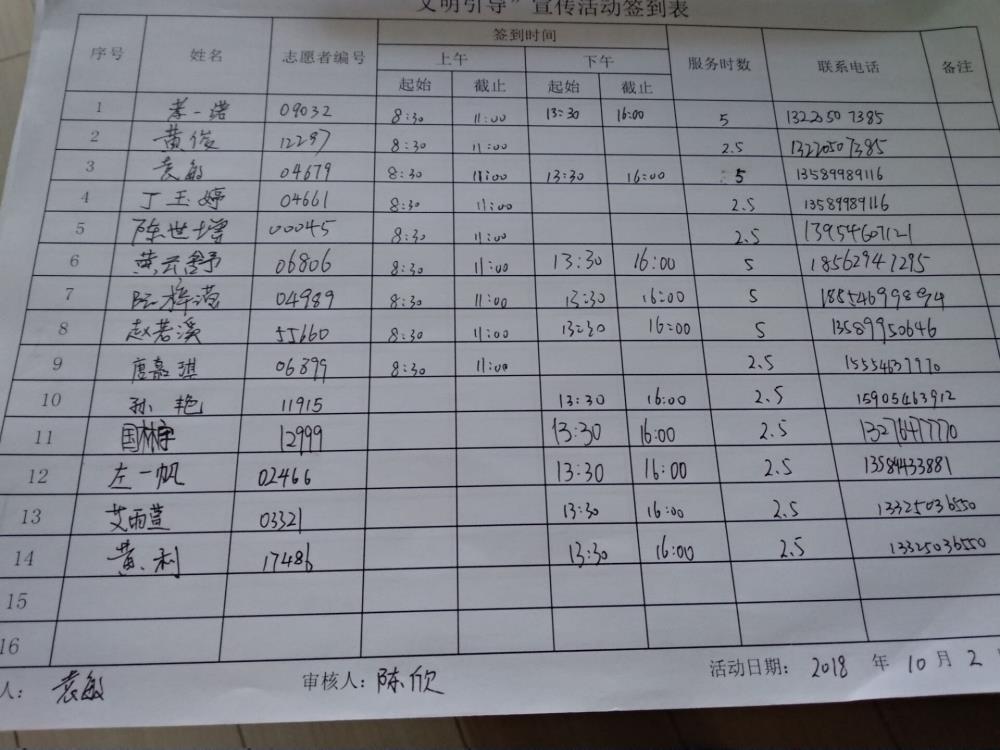 文明引导”宣传活动签到表
序号 姓名 志愿者编号 签到时间 服务时数 联系电话 备注
上午 下午
起始 截止 起始 截止
1 一诺 09032 8:30 11:00 13:30 16:00 5 13220507385
2 黄俊 12297 8:30 11:00 2.5 13220507385
3 袁敏 04679 8:30 11:00 13:30 16:00 5 13589989116
4 丁玉婷 04661 8:30 11:00 2.5 13589989116
5 陈世增 00045 8:30 11:00 2.5 13954607121
6 黄云舒 06806 8:30 11:00 13:30 16:00 5 18562947295
7 04989 8:30 11:00 13:30 16:00 5 18854699894
8 赵若溪 55660 8:30 11:00 13:30 16:00 5 13589950646
9 唐嘉琪 06899 8:30 11:00 2.5 15554637770
10 孙艳 11915 13:30 16:00 2.5 15905463912
11 国林宇 12999 13:30 16:00 2.5 13276477770
12 左一帆 02466 13:30 16:00 2.5 13584433881
13 艾雨萱 03321 13:30 16:00 2.5 13325036550
14 黄利 17486 13:30 16:00 2.5 13325036550
15
16
人: 袁敏 审核人: 陈欣 活动日期: 2018 年 10 月 2